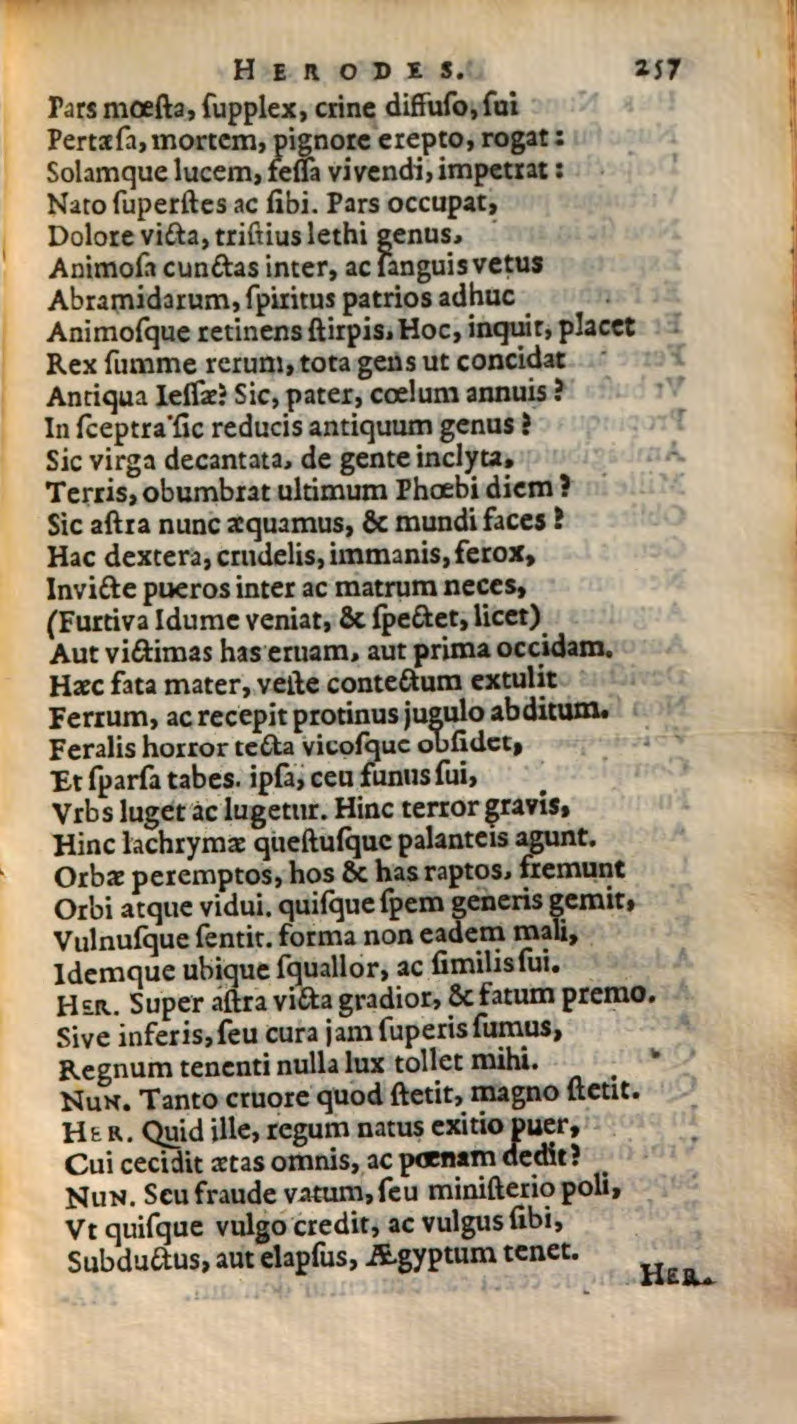 HERODES. 257
Pars mœſta, ſupplex, crine diffuſo, ſui
Pertæſa, mortem, pignore erepto, rogat:
Solamque lucem, feſſa vivendi, impetrat:
Nato ſuperſtes ac ſibi. Pars occupat,
Dolore victa, triſtius lethi genus,
Animoſa cunctas inter, ac ſanguis vetus
Abramidarum, ſpiritus patrios adhuc
Animoſque retinens ſtirpis, Hoc, inquit, placet
Rex ſumme rerum, tota gens ut concidat
Antiqua Ieſſæ? Sic, pater, cœlum annuis?
In ſceptra ſic reducis antiquum genus?
Sic virga decantata, de gente inclyta,
Terris, obumbrat ultimum Phœbi diem?
Sic aſtra nunc æquamus, & mundi faces?
Hac dextera, crudelis, immanis, ferox,
Invicte pueros inter ac matrum neces,
(Furtiva Idume veniat, & ſpectet, licet)
Aut victimas has eruam, aut prima occidam.
Hæc fata mater, veſte contectum extulit
Ferrum, ac recepit protinus jugulo abditum.
Feralis horror tecta vicoſque obſidet,
Et ſparſa tabes. ipſa, ceu funus ſui,
Vrbs luget ac lugetur. Hinc terror gravis,
Hinc lachrymæ queſtuſque palanteis agunt.
Orbæ peremptos, hos & has raptos, fremunt
Orbi atque vidui. quiſque ſpem generis gemit,
Vulnuſque ſentit. forma non eadem mali,
Idemque ubique ſquallor, ac ſimilis ſui.
HER. Super aſtra victa gradior, & fatum premo.
Sive inferis, ſeu cura jam ſuperis ſumus,
Regnum tenenti nulla lux tollet mihi.
NUN. Tanto cruore quod ſtetit, magno ſtetit.
HER. Quid ille, regum natus exitio puer,
Cui cecidit ætas omnis, ac pœnam dedit?
NUN. Seu fraude vatum, ſeu miniſterio poli,
Vt quiſque vulgo credit, ac vulgus ſibi,
Subductus, aut elapſus, Ægyptum tenet.
HER.